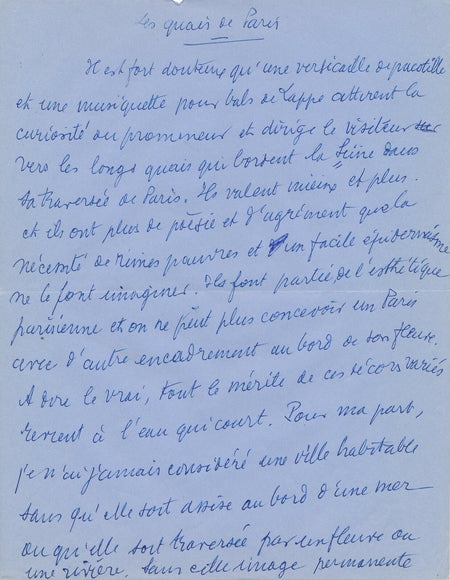 Les quais de Paris
Il est fort douteux qu'une versicaille de pacotille
et une musiquette pour bals de Lappe attirent la
curiosité du promeneur et dirige le visiteur
vers les longs quais qui bordent la Seine dans
sa traversée de Paris. Ils valent mieux et plus.
et ils ont plus de poésie et d'agrément que la
nécessité de rimes pauvres et un facile épidermisme
ne le font imaginer. Ils font partie de l'esthétique
parisienne et on ne peut plus concevoir un Paris
avec d'autre encadrement au bord de son fleuve.
A dire le vrai, tout le mérite de ces décors variés
revient à l'eau qui court. Pour ma part,
je n'ai jamais considéré une ville habitable
sans qu'elle soit assise au bord d'une mer
ou qu'elle soit traversée par un fleuve ou
une rivière. Sans cette image permanente